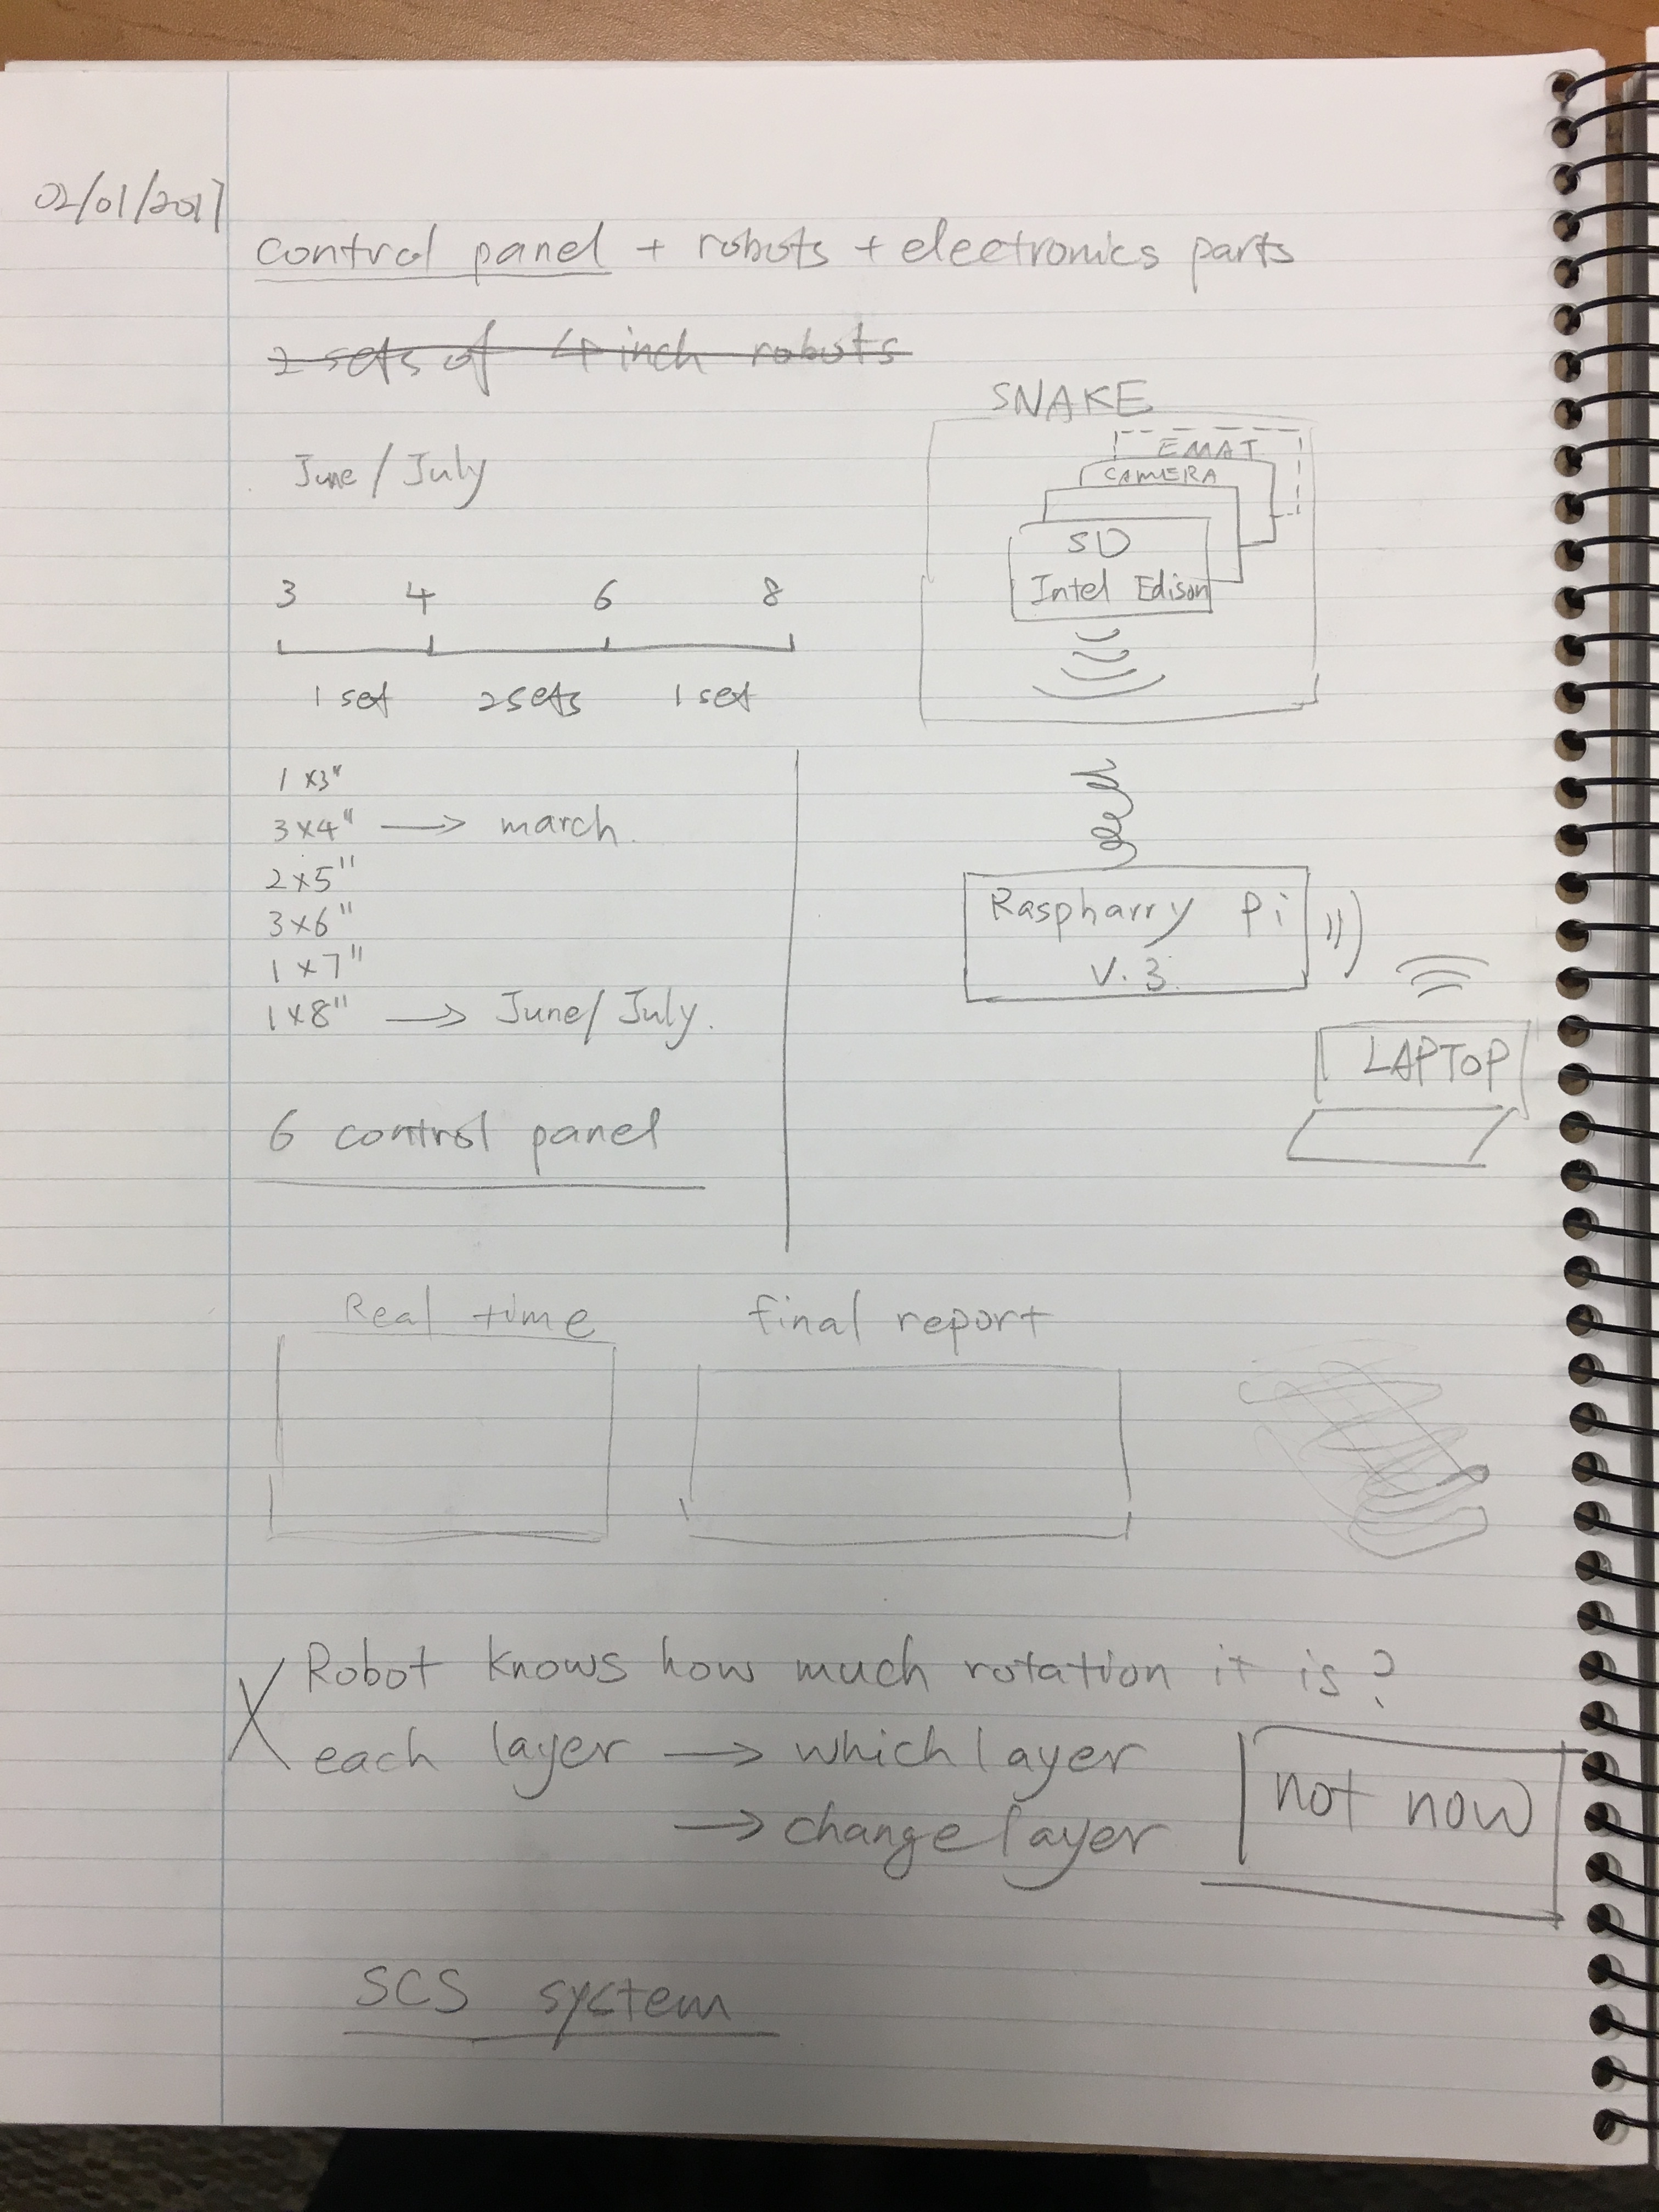 02/01/2017
control panel + robots + electronics parts
2 sets of 4 inch robots
June / July
SNAKE
EMAT
CAMERA
SD
Intel Edison
3 4 6 8
1 set 2 sets 1 set
1 x3"
3 x4" → march.
2 x5"
3 x6"
1 x 7"
1 x8" → June/ July.
6 control panel
Raspharry Pi
V. 3.
LAPTOP
Real time
final report
X Robot knows how much rotation it is?
each layer → which layer
→ change layer
not now
SCS system